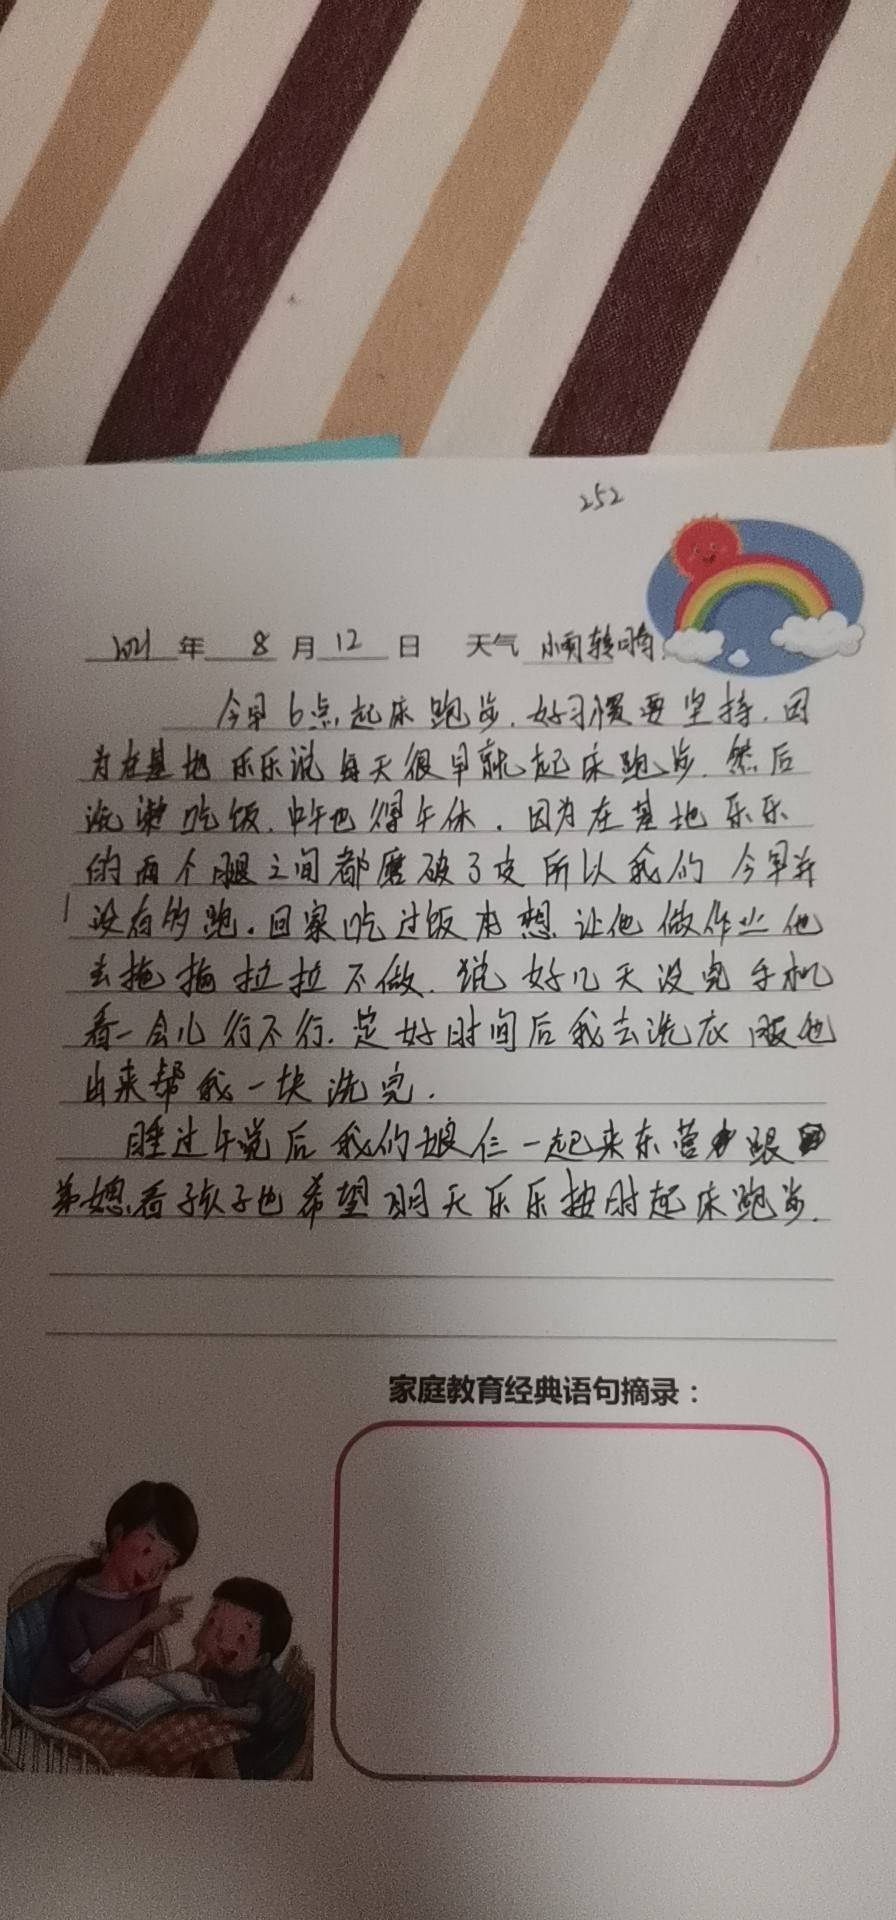 252
2021年 8月12日 天气 小雨转晴
今早6点起床跑步.好习惯要坚持.因
为在基地乐乐说每天很早就起床跑步.然后
洗漱吃饭.中午也得午休.因为在基地乐乐
的两个腿之间都磨破了皮所以我们今早并
没有的跑.回家吃过饭本想让他做作业他
去拖拖拉拉不做.说好几天没完手机
看一会儿行不行.定好时间后我去洗衣服他
出来帮我一块洗完.
睡过午觉后我们娘仨一起来东营跟
弟媳看孩子也希望明天乐乐按时起床跑步.
家庭教育经典语句摘录：